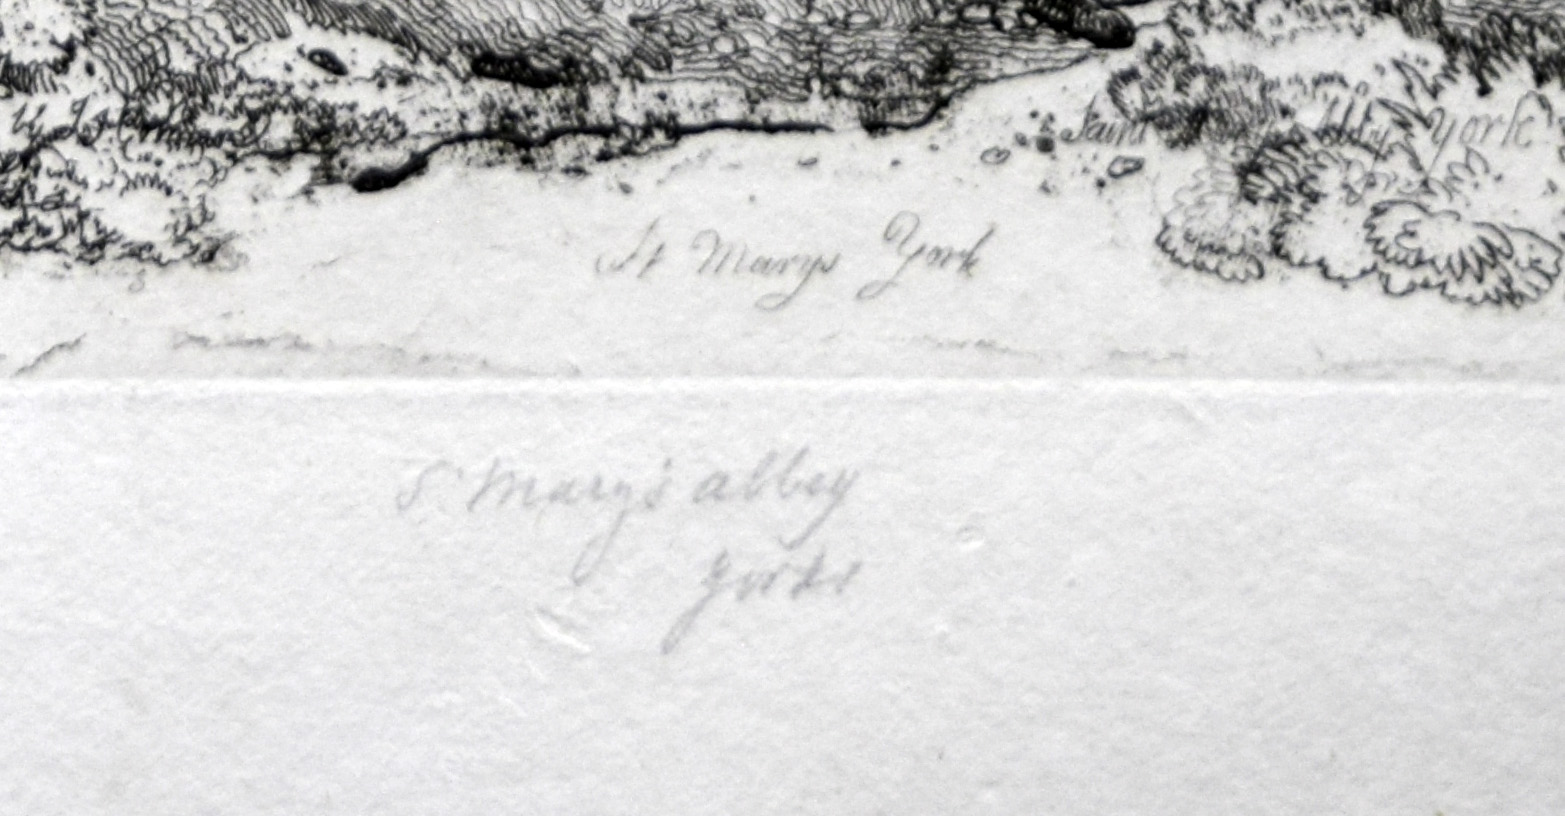 Saint York
St Marys York
S. Mary's abbey
York